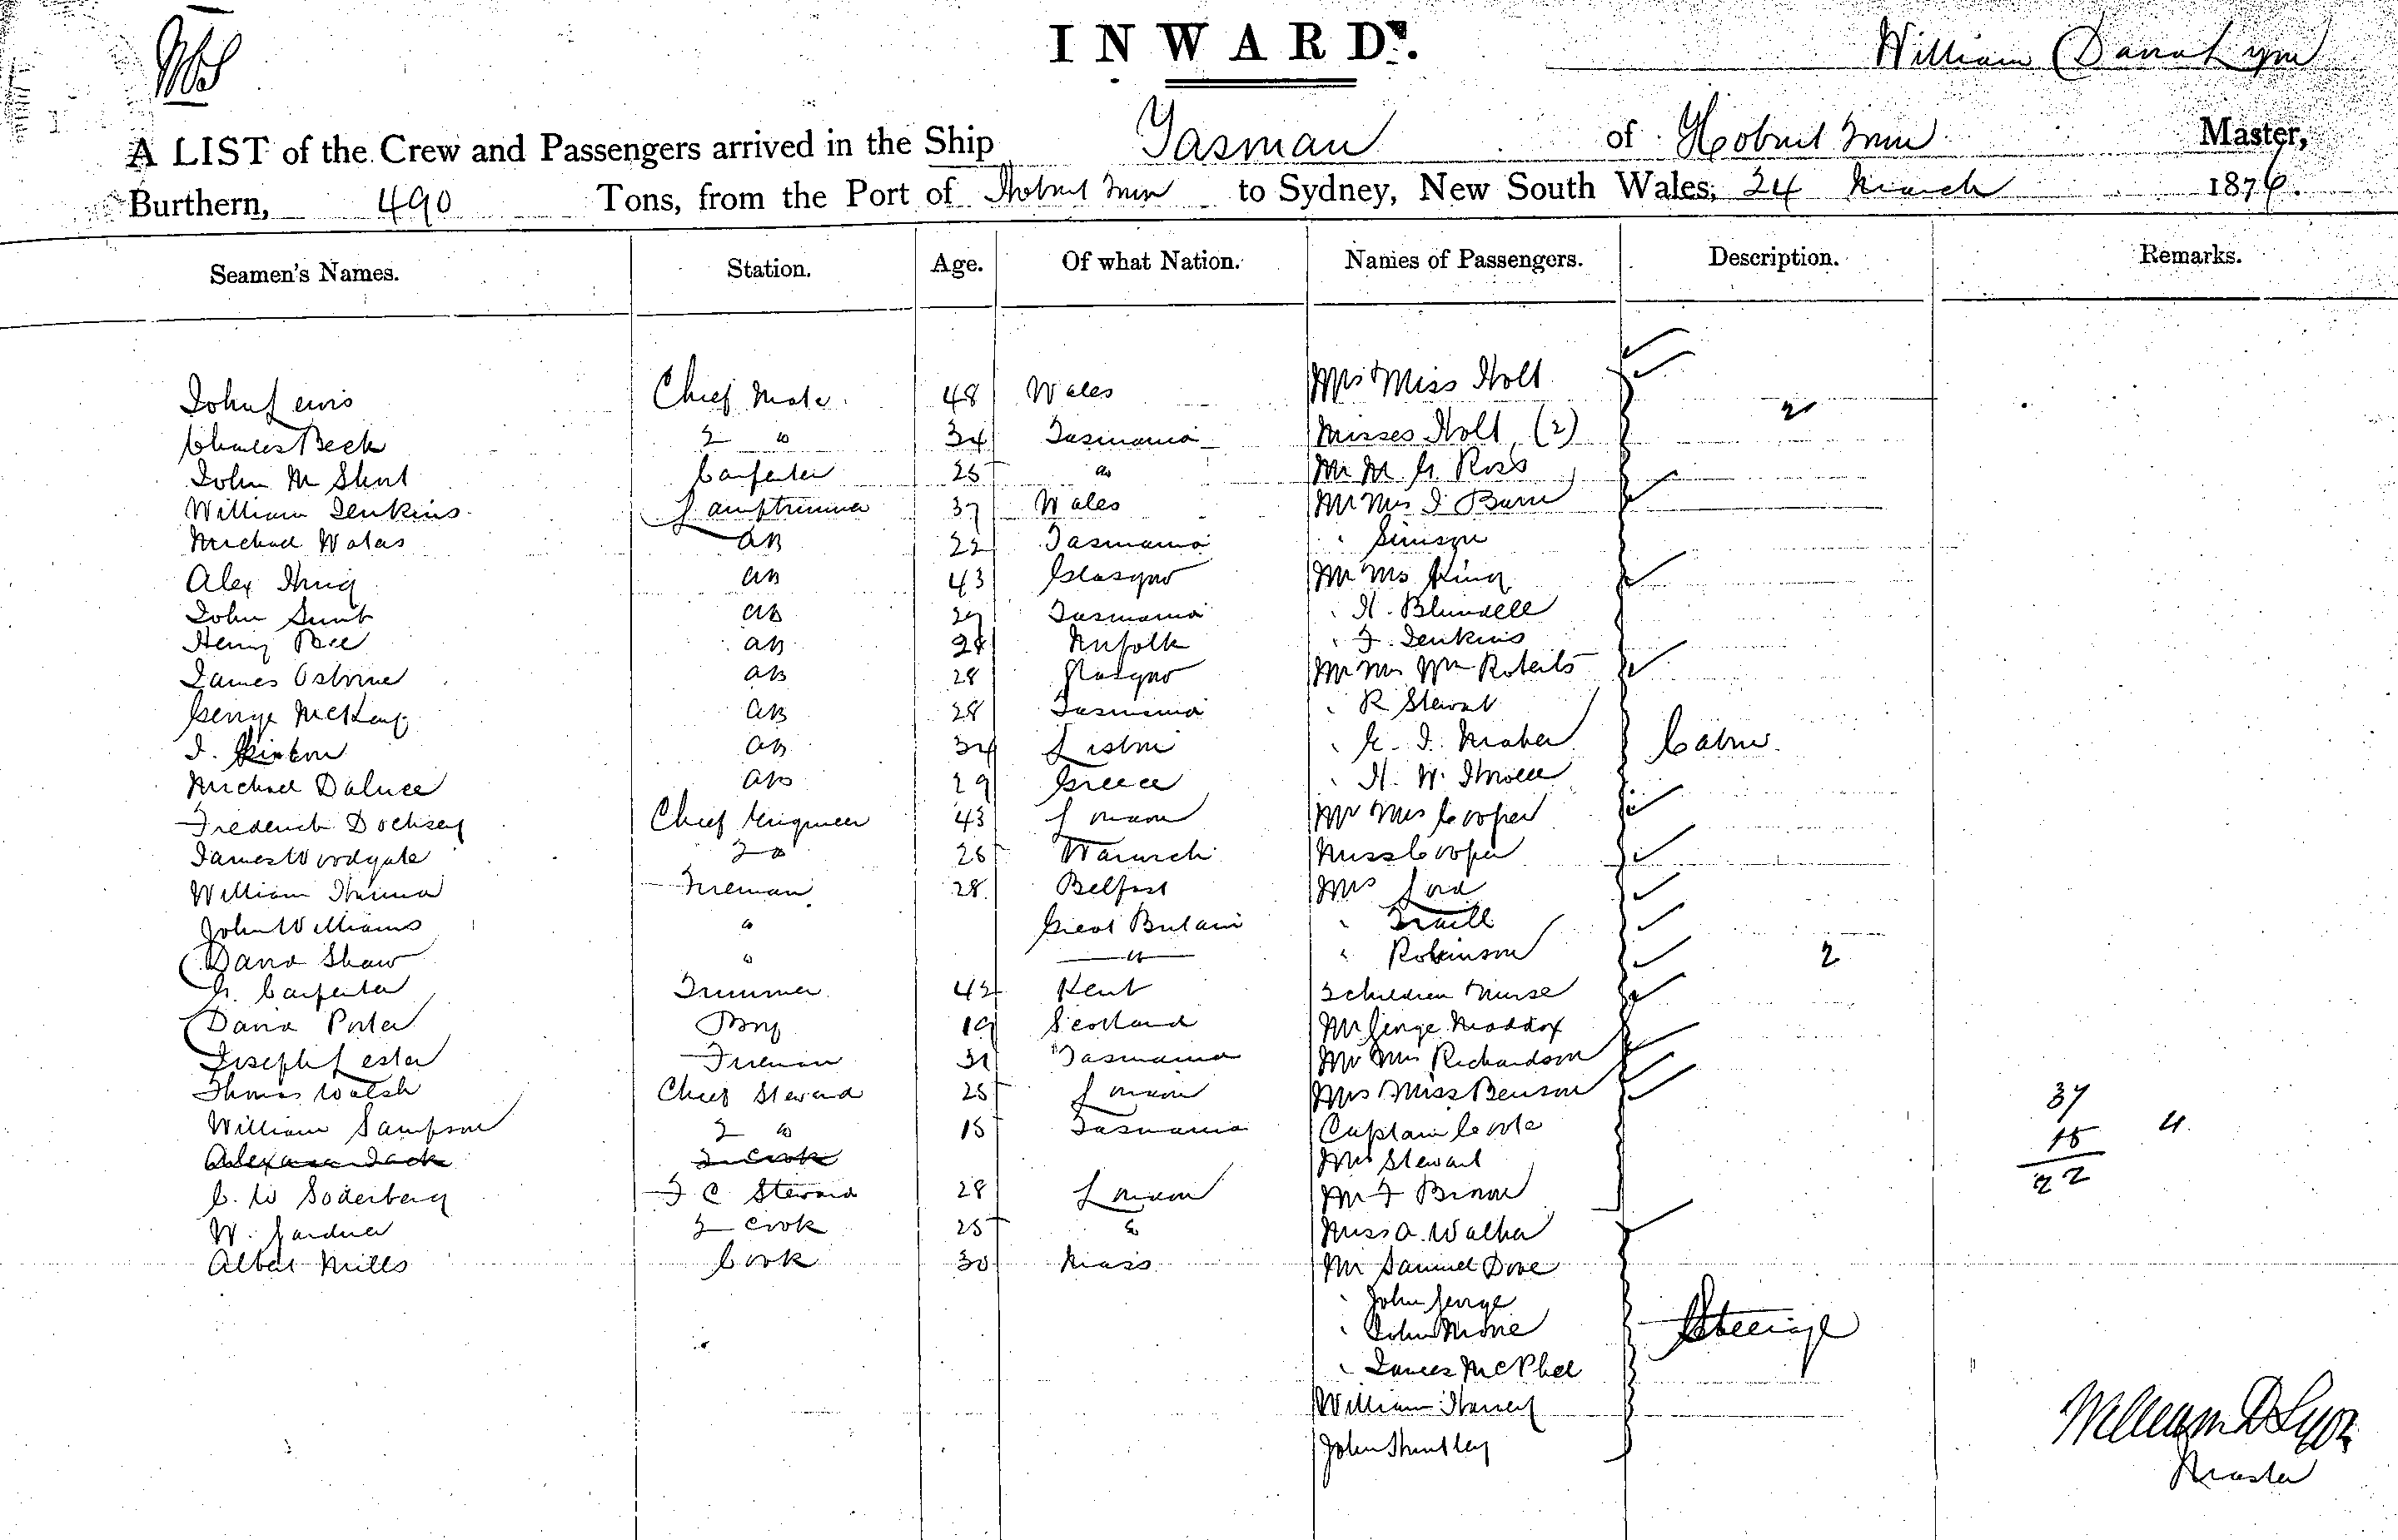 INWARD.
William David Lyon
A LIST of the Crew and Passengers arrived in the Ship Tasman of Hobart Town Master,
Burthern, 490 Tons, from the Port of Hobart Town to Sydney, New South Wales, 24 March 1876.
Seamen's Names. Station. Age. Of what Nation. Names of Passengers. Description. Remarks.
John Lewis Chief Mate 48 Wales Mrs & Miss Holt
Charles Beck 2 do 34 Tasmania Misses Holt (2) 2
John M Shut Carpenter 25 do Mr M G. Ross
William Jenkins Lamptrimmer 37 Wales Mr Mrs I Burn
Michael Waters AB 22 Tasmania " Simson
Alex AB 43 Glasgow Mr Mrs King
John AB 29 Tasmania " H. Blundell
Henry AB 28 Norfolk " F. Jenkins
James Osborne AB 28 Glasgow Mr Mrs Wm Roberts
George McKay AB 28 Tasmania " R Stewart
AB 34 Lisbon " G. I. Maher Cabin
Michael Daluce AB 29 Greece " H. W.
Frederick Chief Engineer 43 London Mr Mrs Cooper
James Woodgate 2 do 25 Warwick Miss Cooper
William Fireman 28 Belfast Mrs Lord
John Williams do Great Britain " Traill
David Shaw do do " Robinson 2
G. Carpenter Trimmer 42 Kent 2 children & nurse
David Porter Boy 19 Scotland Mr George Maddox
Joseph Lester Fireman 31 Tasmania Mr Mrs Richardson
Thomas Walsh Chief Steward 25 London Mrs & Miss Benson 37
William Sampson 2 do 15 Tasmania Captain Coote 15 4
Jack 2 Cook Mrs Stewart 22
C. W Soderberg F C Steward 28 London Mr F Brown
W. Gardner 2 Cook 25 do Miss A. Walker
Albert Mills Cook 30 Mass Mr Samuel Dove
" John George
" John Steerage
" James McPhee
William Harvey
John Huntley
William D Lyon
Master